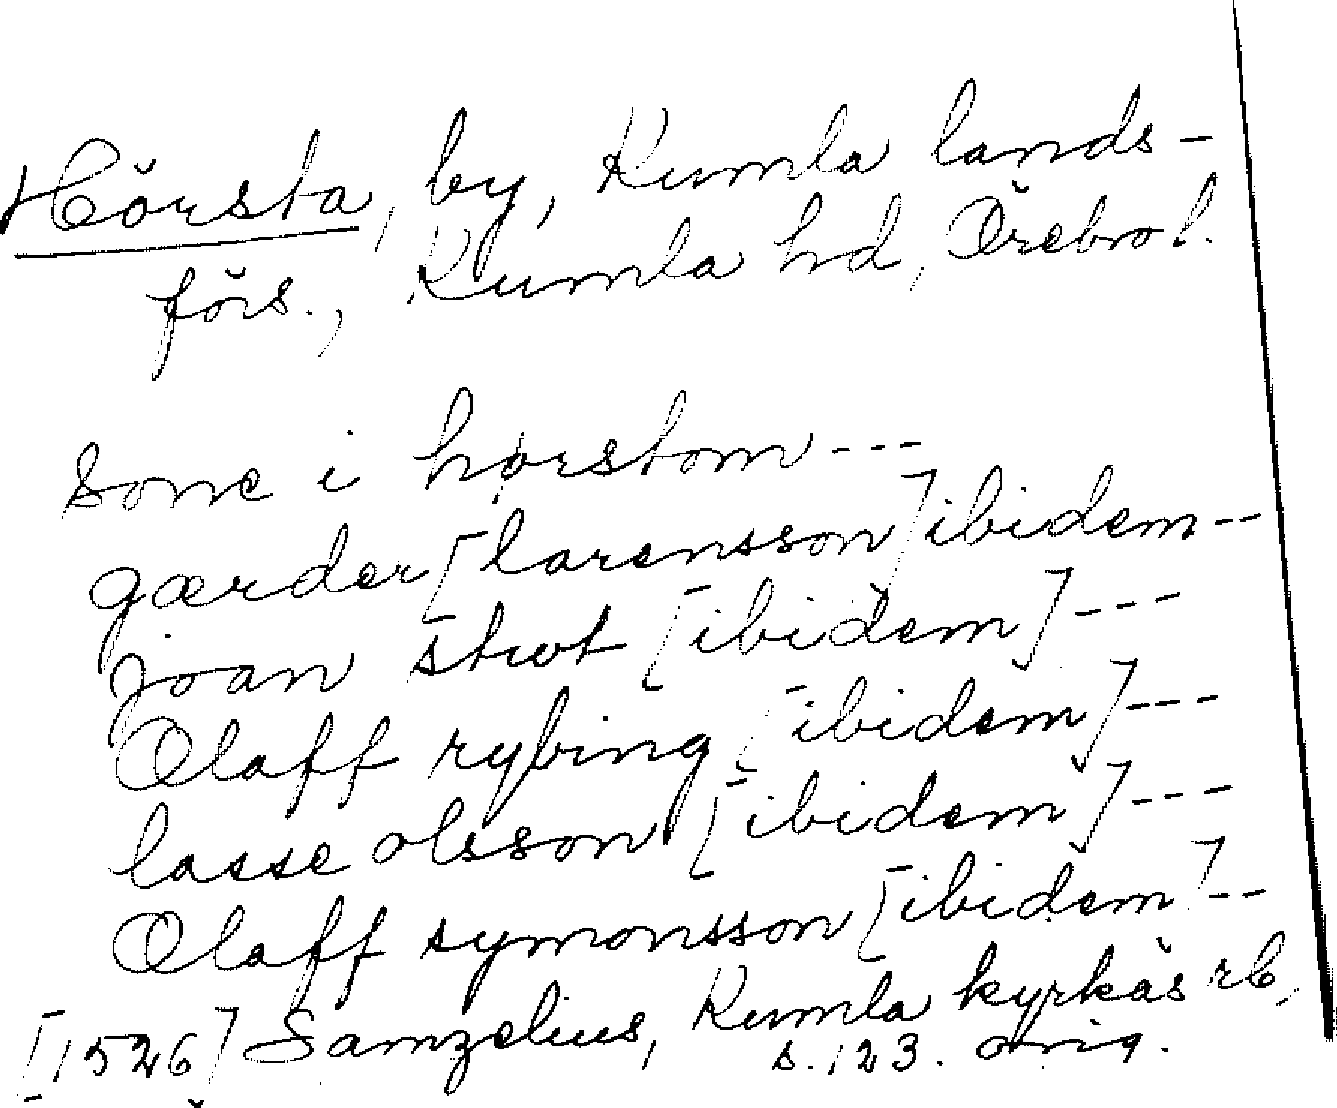 Hörsta, by, Kumla lands-
förs., Kumla hd, Örebro l.
Sone i hørstom ---
gærder [larensson] ibidem --
joan strot [ibidem] ---
Olaff rybing [ibidem] ---
lasse olsson [ibidem] ---
Olaff symonsson [ibidem] --
[1526] Samzelius, Kumla kyrkas rb,
s. 123. orig.